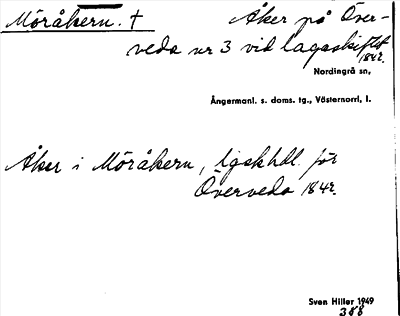 Möråkern. † Åker på Över-
veda nr 3 vid lagaskiftet
1842.
Nordingrå sn,
Ångermanl. s. doms. tg., Västernorrl, l.
Åker i Möråkern, lgskhdl. för
Överveda 1842.
Sven Hiller 1949
388